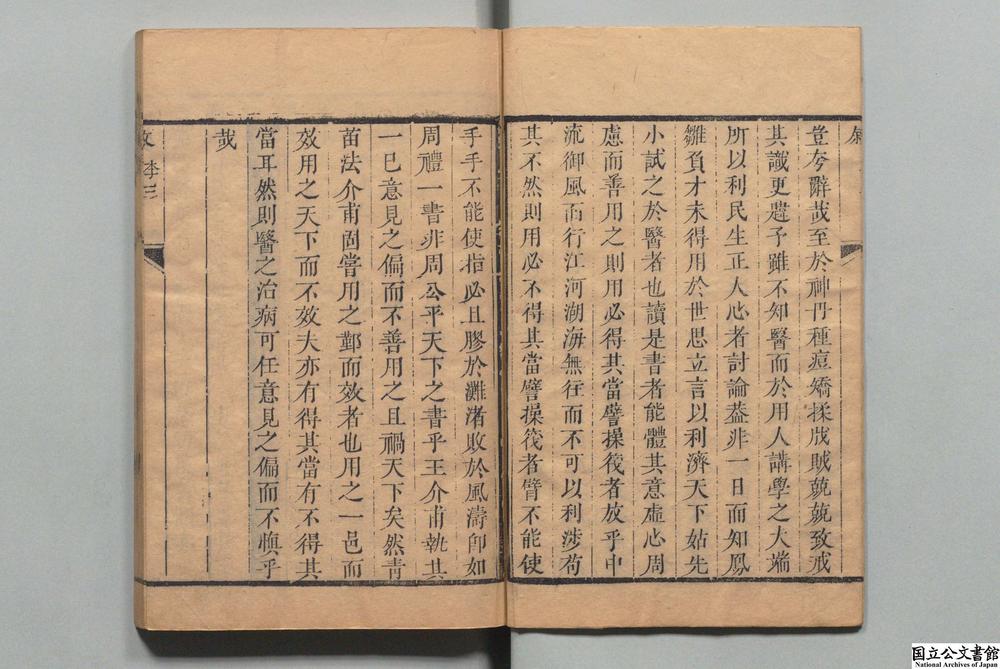 豈夸辭哉至於神丹種痘矯揉戕賊兢兢致戒
其識更趮予雖不知醫而於用人講學之大端
所以利民生正人心者討論葢非一日而知鳳
雛負才未得用於世思立言以利濟天下姑先
小試之於醫者也讀是書者能體其意虛心周
慮而善用之則用必得其當譬操筏者放乎中
流御風而行江河湖海無往而不可以利涉苟
其不然則用必不得其當譬操筏者臂不能使
手手不能使指必且膠於灘渚敗於風濤卽如
周禮一書非周公平天下之書乎王介甫執其
一已意見之偏而不善用之且禍天下矣然靑
苗法介甫固嘗用之鄞而效者也用之一邑而
效用之天下而不效夫亦有得其當有不得其
當耳然則醫之治病可任意見之偏而不愼乎
哉
李三
国立公文書館
National Archives of Japan